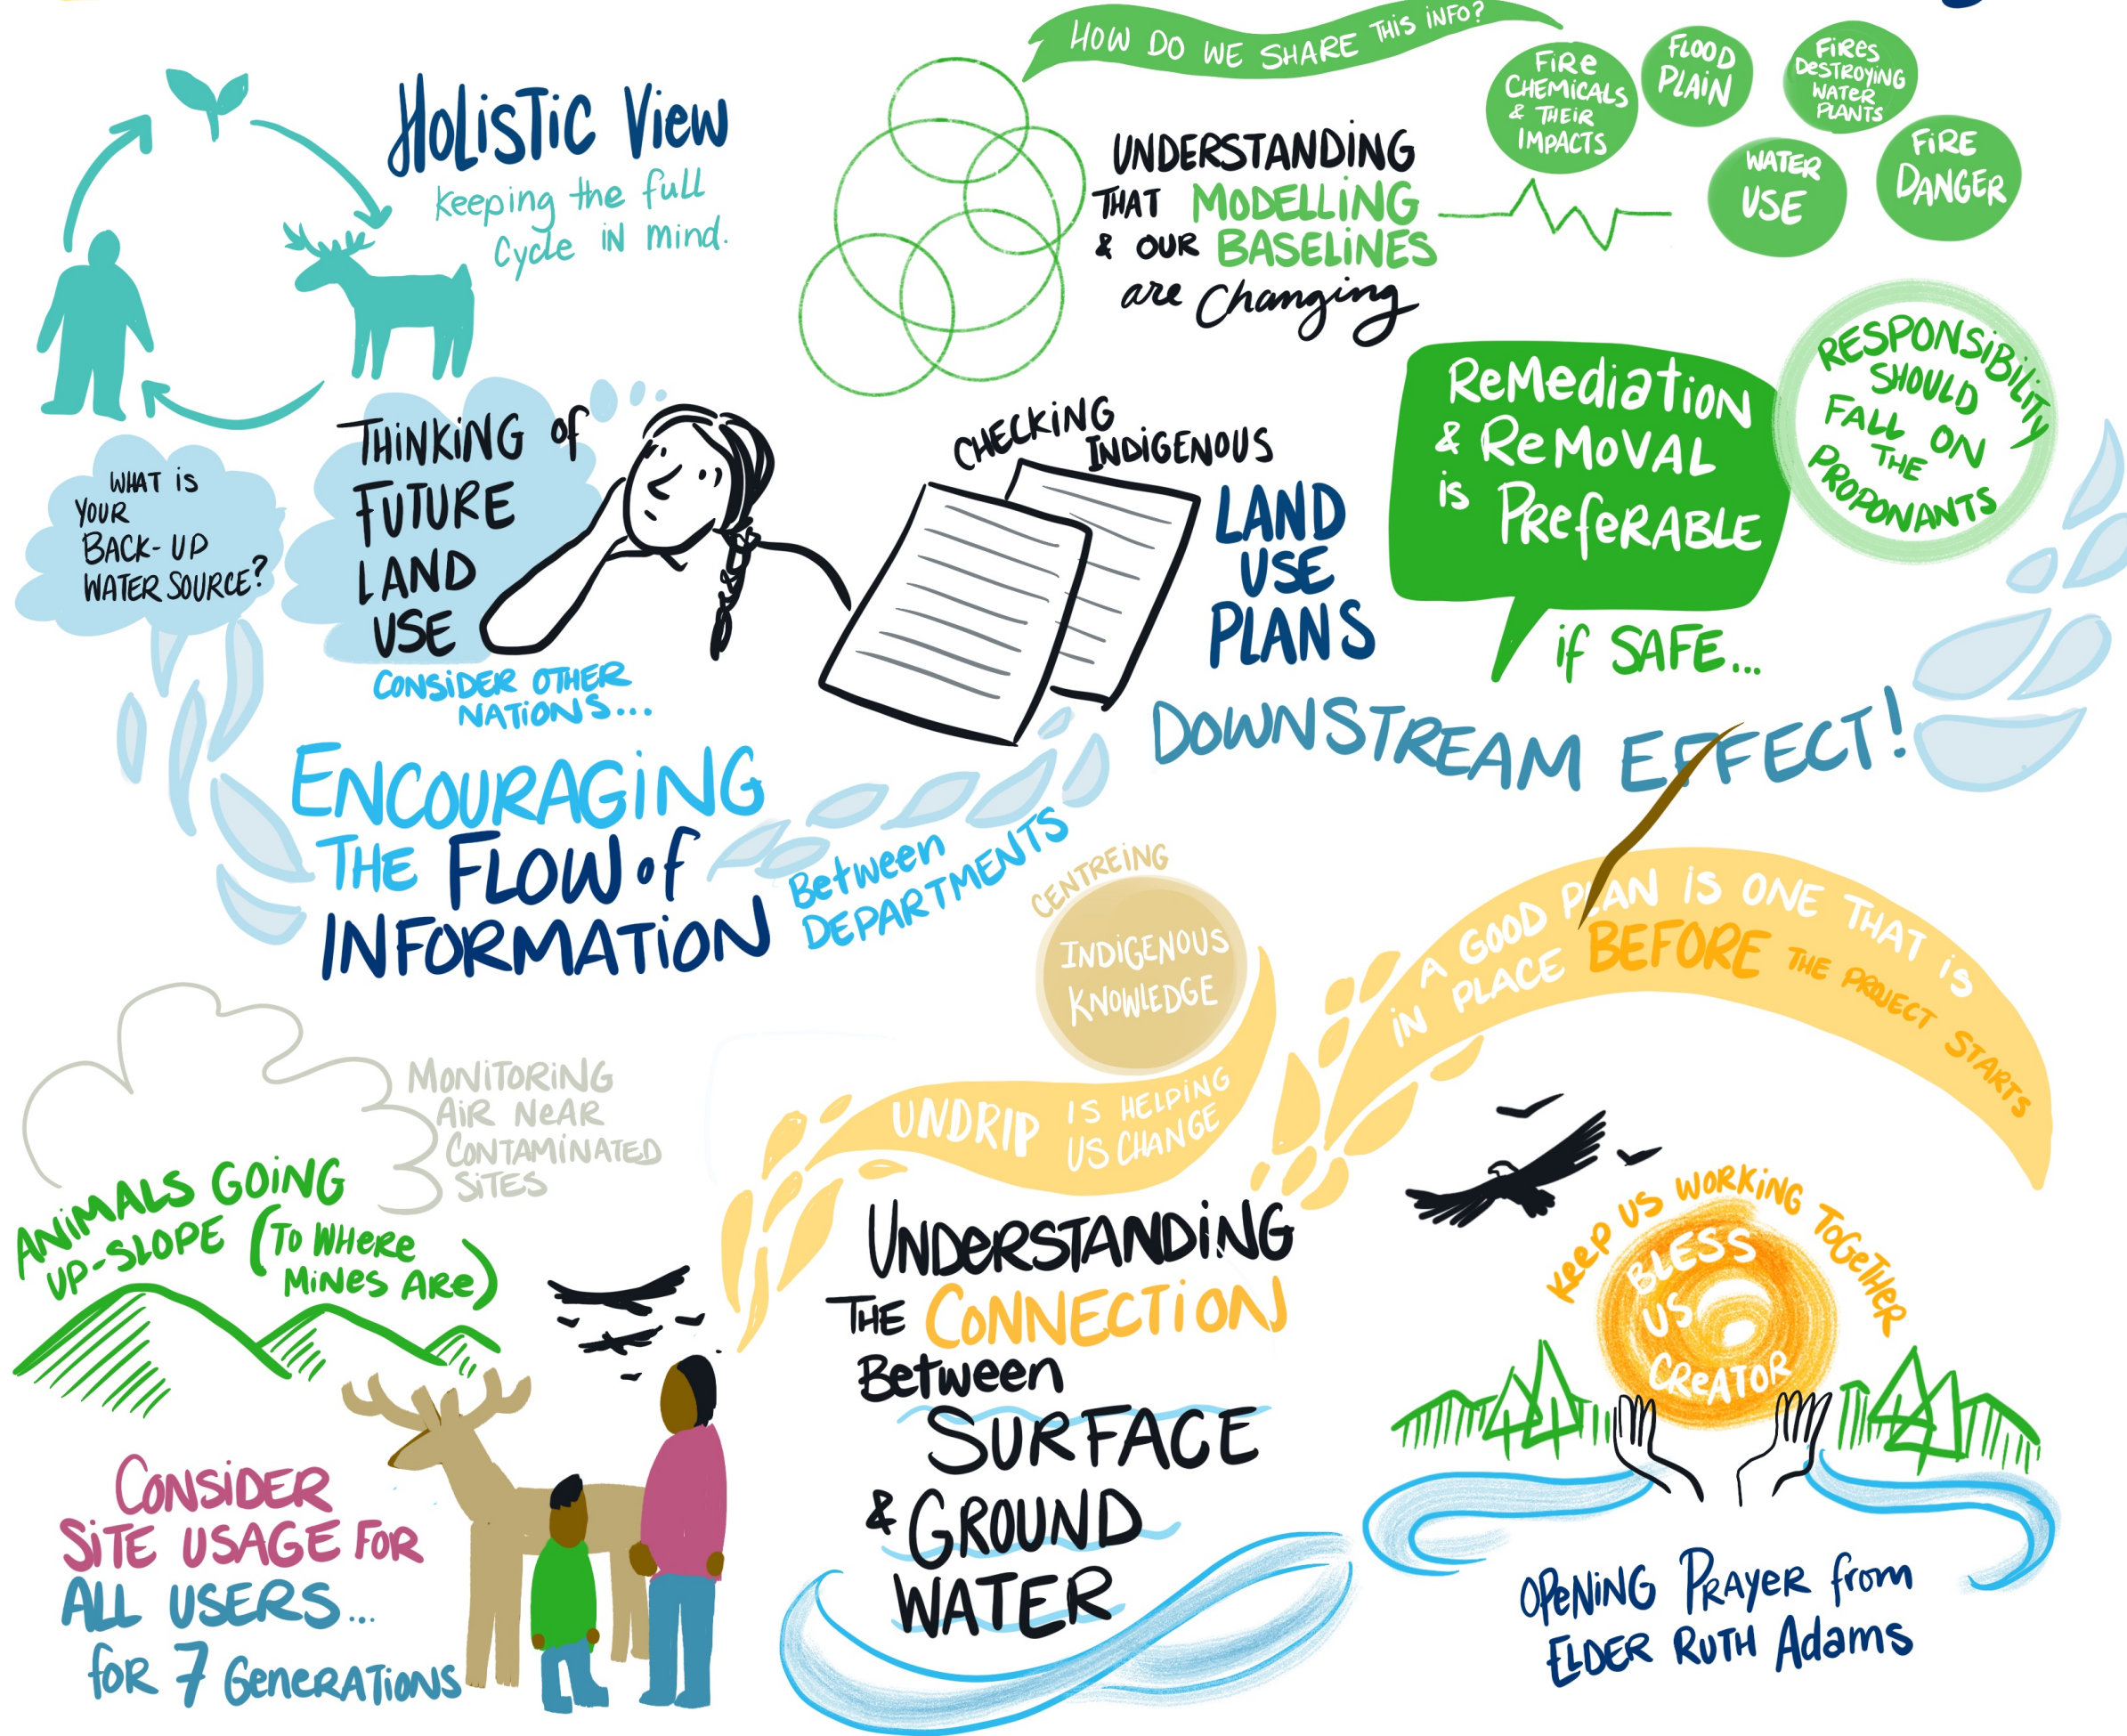 HOLISTIC VIEW
keeping the full
cycle in mind.
HOW DO WE SHARE THIS INFO?
UNDERSTANDING
THAT MODELLING
& OUR BASELINES
are Changing
FIRE
CHEMICALS
& THEIR
IMPACTS
FLOOD
PLAIN
FIRES
DESTROYING
WATER
PLANTS
WATER
USE
FIRE
DANGER
WHAT IS
YOUR
BACK-UP
WATER SOURCE?
THINKING of
FUTURE
LAND
USE
CONSIDER OTHER
NATIONS...
CHECKING
INDIGENOUS
LAND
USE
PLANS
REMEDIATION
& REMOVAL
is PREFERABLE
if SAFE...
RESPONSIBILITY
SHOULD
FALL ON
THE
PROPONANTS
DOWNSTREAM EFFECT!
ENCOURAGING
THE FLOW of
INFORMATION
Between
DEPARTMENTS
CENTREING
INDIGENOUS
KNOWLEDGE
UNDRIP IS HELPING
US CHANGE
A GOOD PLAN IS ONE THAT IS
IN PLACE BEFORE THE PROJECT STARTS
MONITORING
AIR NEAR
CONTAMINATED
SITES
ANIMALS GOING
UP-SLOPE (TO WHERE
MINES ARE)
CONSIDER
SITE USAGE FOR
ALL USERS...
for 7 GENERATIONS
UNDERSTANDING
THE CONNECTION
Between
SURFACE
& GROUND
WATER
KEEP US WORKING TOGETHER
BLESS
US
CREATOR
OPENING PRAYER from
ELDER RUTH Adams